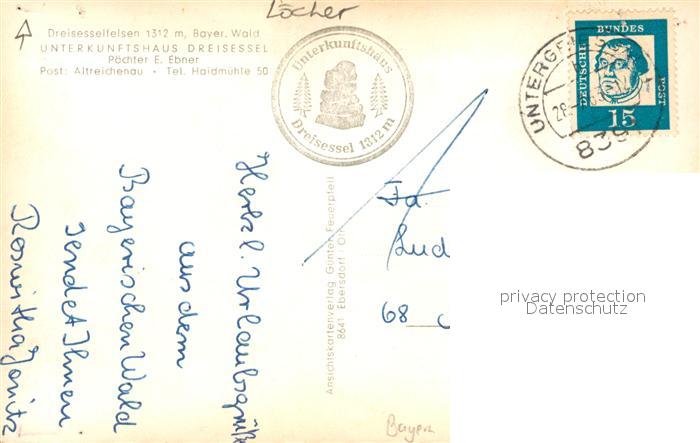 Löcher
Dreisesselfelsen 1312 m, Bayer. Wald
UNTERKUNFTSHAUS DREISESSEL
Pächter E. Ebner
Post: Altreichenau • Tel. Haidmühle 50
Unterkunftshaus
Dreisessel 1312 m
DEUTSCHE BUNDES POST
15
UNTERGR
28.
839
Herzl. Urlaubsgrüße
aus dem
Bayerischen Wald
sendet Ihnen
Roswitha Jonitz
Ansichtskartenverlag Günter Feuerpfeil
8641 Ebersdorf
Fa.
Lud
68
privacy protection
Datenschutz
Bayern